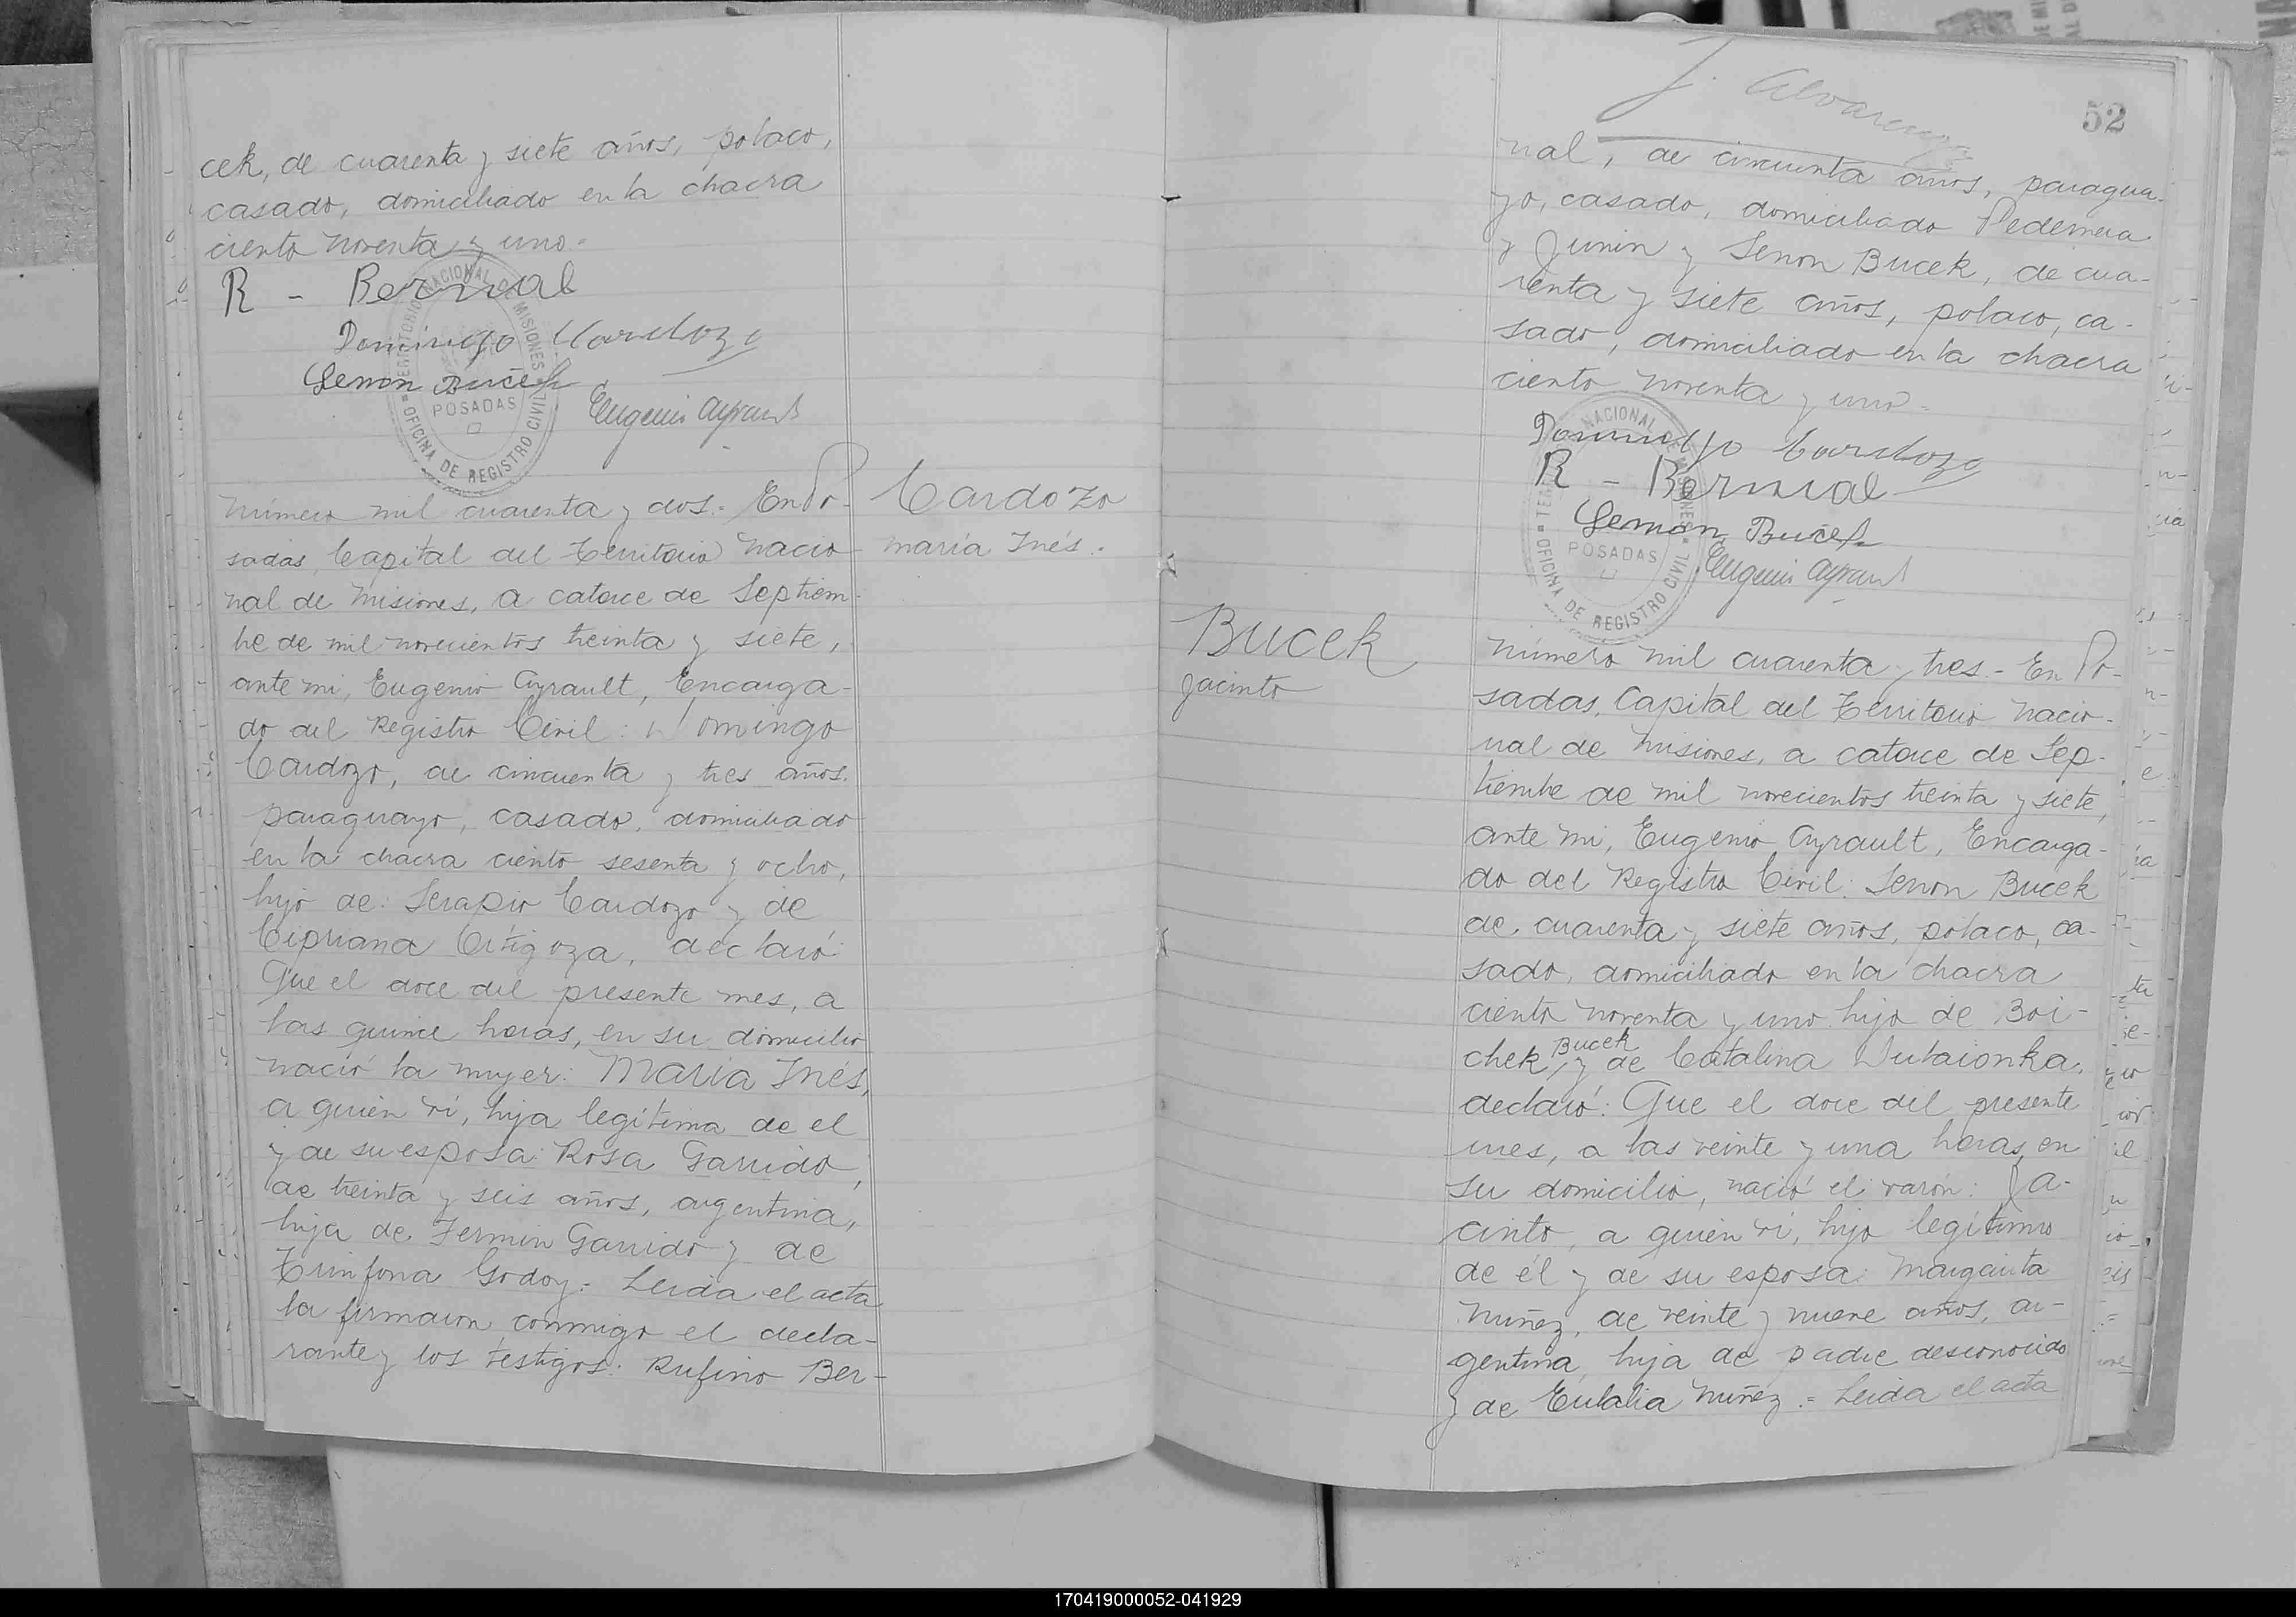 cek, de cuarenta y siete años, polaco,
casado, domiciliado en la chacra
ciento noventa y uno.-
R - Bernal
Domingo Cardozo
Senon Bucek
Eugenio Ayrault
TERRITORIO NACIONAL DE MISIONES
OFICINA DE REGISTRO CIVIL
POSADAS
Cardozo
maría Inés.
número mil cuarenta y dos.- En Po-
sadas, Capital del Territorio nacio-
nal de misiones, a catorce de Septiem-
bre de mil novecientos treinta y siete,
ante mi, Eugenio Ayrault, Encarga-
do del Registro Civil: Domingo
Cardozo, de cincuenta y tres años,
paraguayo, casado, domiciliado
en la chacra ciento sesenta y ocho,
hijo de: Serapio Cardozo y de
Cipriana Ortigoza, declaró:
Que el doce del presente mes, a
las quince horas, en su domicilio
nació la mujer: María Inés,
a quien vi, hija legítima de el
y de su esposa: Rosa Garrido,
de treinta y seis años, argentina,
hija de Fermin Garrido y de
Trinfona Godoy.- Leida el acta
la firmaron conmigo el decla-
rante y los testigos: Rufino Ber-
52
J. Alvarenga
nal, de cincuenta años, paragua-
yo, casado, domiciliado Pedernera
y Junin y Senon Bucek, de cua-
renta y siete años, polaco, ca-
sado, domiciliado en la chacra
ciento noventa y uno.-
Domingo Cardozo
R - Bernal
Senon Bucek
Eugenio Ayrault
TERRITORIO NACIONAL DE MISIONES
OFICINA DE REGISTRO CIVIL
POSADAS
Bucek
Jacinto
número mil cuarenta y tres.- En Po-
sadas, Capital del Territorio nacio-
nal de misiones, a catorce de Sep-
tiembre de mil novecientos treinta y siete,
ante mi, Eugenio Ayrault, Encarga-
do del Registro Civil: Senon Bucek
de, cuarenta y siete años, polaco, ca-
sado, domiciliado en la chacra
ciento noventa y uno hijo de Boi-
Bucek
chek, y de Catalina Dutaionka,
declaró: Que el doce del presente
mes, a las veinte y una horas, en
su domicilio, nació el varón: Ja-
cinto, a quien vi, hijo legítimo
de él y de su esposa: Margarita
nuñez, de veinte y nueve años, ar-
gentina, hija de padre desconocido
y de Eulalia nuñez.= Leida el acta
170419000052-041929